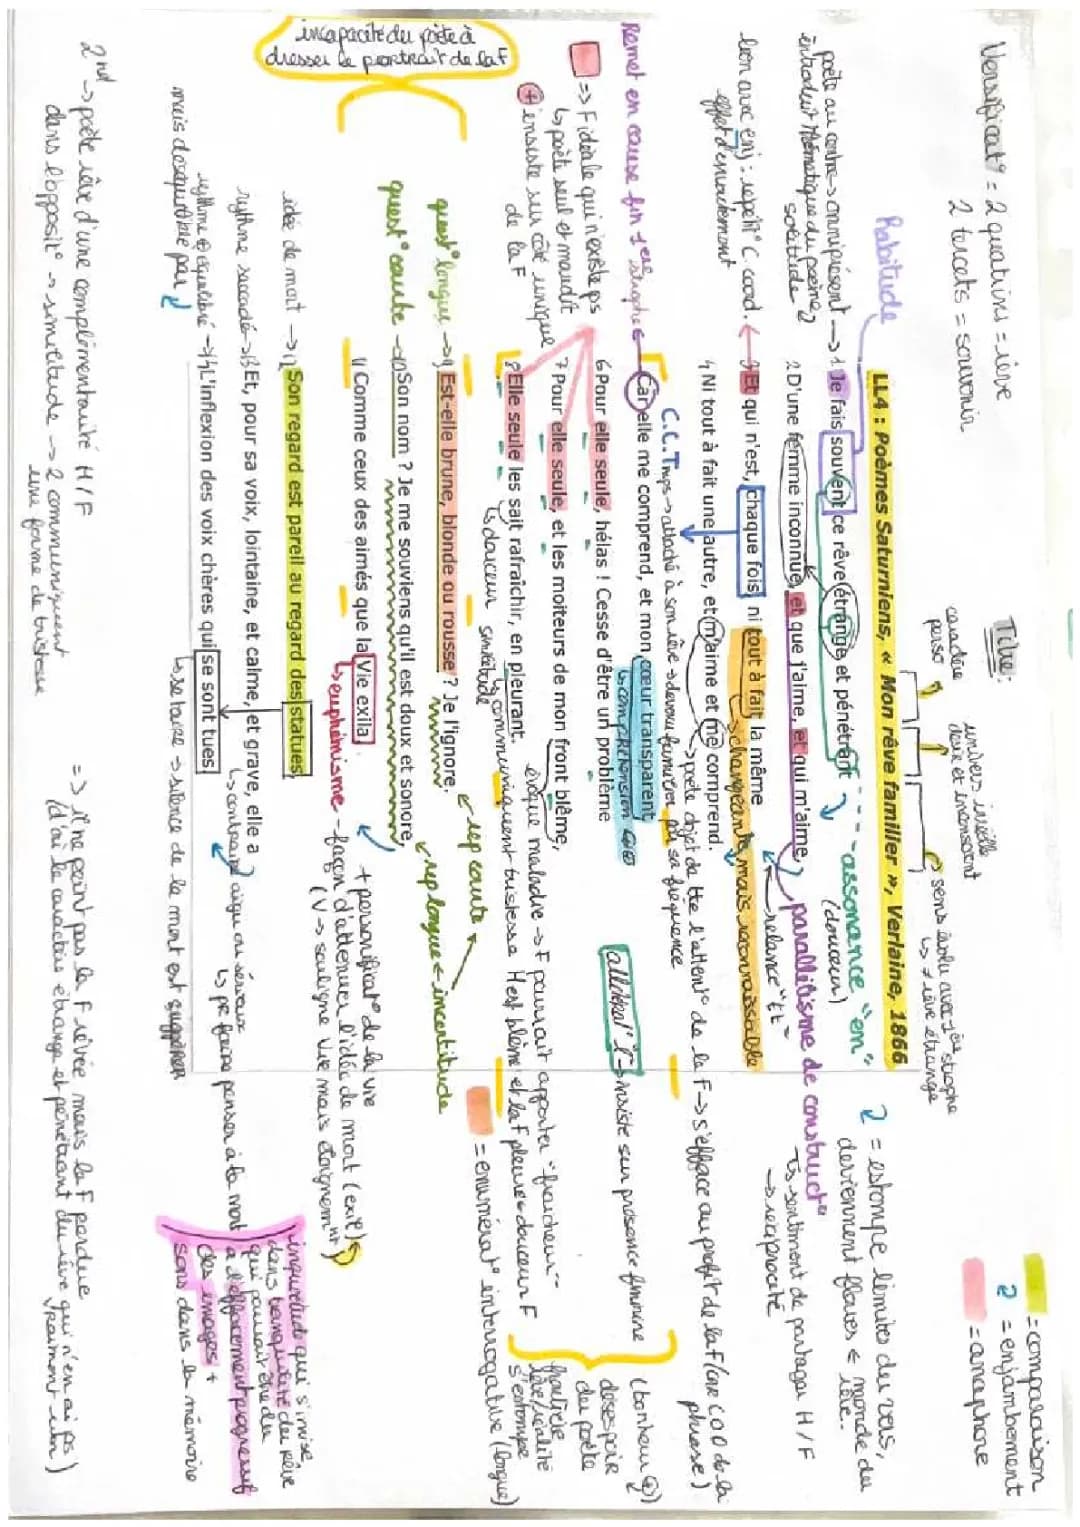 Versificat° = 2 quatrains = rêve
2 tercets = souvenir
Titre :
caractère perso
univers irréel doux et inconscient
sens évolu avec 1ère strophe
↳ ≠ rêve étrange
= comparaison
2 = enjambement
= anaphore
LL4 : Poèmes Saturniens, « Mon rêve familier », Verlaine, 1866
habitude
poète au centre → omniprésent →
introduit thématique du poème
solitude
1 Je fais souvent ce rêve étrange et pénétrant
assonance "em" (douceur)
2 = estompe limites du vers,
deviennent floues ← monde du rêve.
2 D'une femme inconnue, et que j'aime, et qui m'aime,
parallélisme de construct°
↳ sentiment de partager H/F
→ réciprocité
relance "et"
lien avec enj : repétit° C. coord.
effet d'envoutement
3 Et qui n'est, chaque fois, ni tout à fait la même
changeante, mais reconnaissable
4 Ni tout à fait une autre, et m'aime et me comprend.
↳ poète objet de tte l'attent° de la F → s'efface au profit de la F (car COD de la phrase)
C.C.Tmps → attaché à son rêve → devenu familier par sa fréquence
Remet en cause fin 1ère strophe
5 Car elle me comprend, et mon cœur transparent
↳ compréhension
allitérat° "l" → insiste sur présence féminine
⇒ F idéale qui n'existe ps
↳ poète seul et maudit
6 Pour elle seule, hélas ! Cesse d'être un problème
(bonheur)
désespoir du poète
+ insiste sur côté unique de la F
7 Pour elle seule, et les moiteurs de mon front blême,
évoque maladie → F pourrait apporter "fraicheur"
frontière rêve/réalité s'estompe
8 Elle seule les sait rafraîchir, en pleurant.
↳ douceur
similitude
↳ communiquent tristesse H est blême et la F pleure → douceur F
incapacité du poète à dresser le portrait de la F
quest° longue →
9 Est-elle brune, blonde ou rousse ? Je l'ignore.
← rep courte
= énumérat° interrogative (longue)
quest° courte →
10 Son nom ? Je me souviens qu'il est doux et sonore,
← rep longue ← incertitude
11 Comme ceux des aimés que la Vie exila.
+ personnificat° de la vie
↳ euphémisme - façon d'attenuer l'idée de mort (exil)
(V → souligne Vie mais éloignemnt)
idée de mort →
12 Son regard est pareil au regard des statues,
rythme saccadé →
13 Et, pour sa voix, lointaine, et calme, et grave, elle a
↳ contraire aigu ou sérieux
↳ pr faire penser à la mort
rythme + équilibré →
14 L'inflexion des voix chères qui se sont tues.
mais deséquilibré par 2
↳ se taire → silence de la mort est suggérer
inquiétude qui s'inise
dans tranquillité du rêve
qui pourrait être du
à l'effacement progressif
des images +
sons dans la mémoire
2nd → poète rêve d'une complémentarité H/F
dans l'opposit° → similitude → 2 communiquent
une forme de tristesse
⇒ il ne peint pas la F rêvée mais la F perdue
(d'ai le caractère étrange et pénétrant du rêve qui n'en ai ps vraiment un)